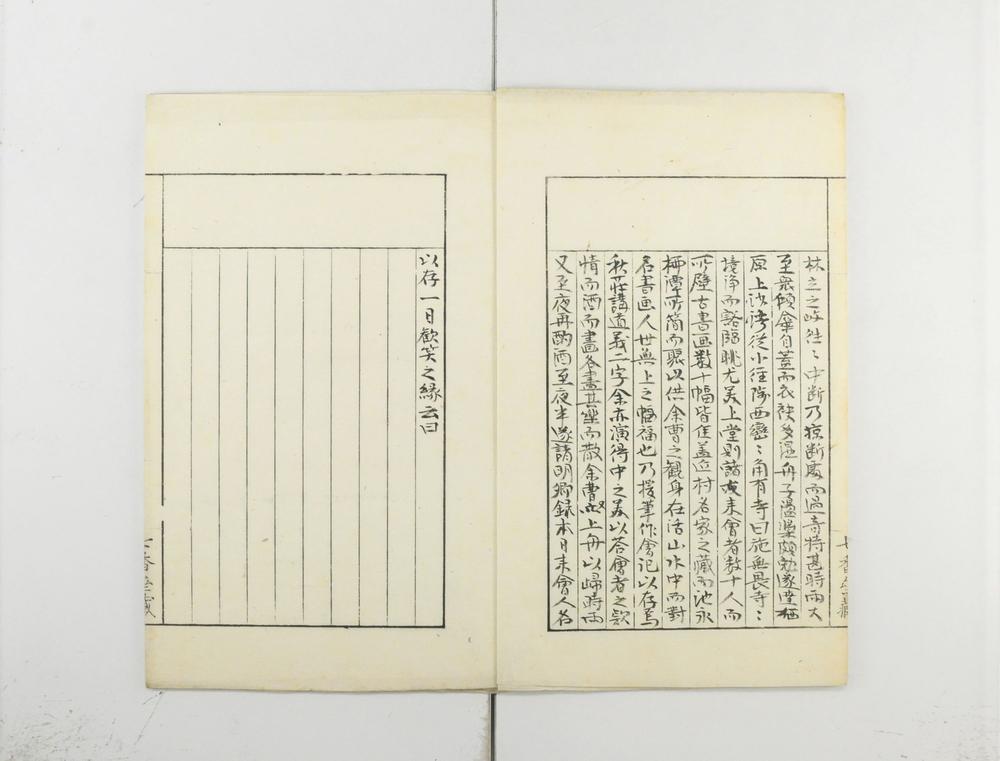 林立之峙往々中断乃猿断處而過奇特甚時雨大
至衆傾傘自蓋而衣袂多湿舟子盪槳頗勉遂達栖
原上沙灣従小径陟西巒々角有寺曰施無畏寺々
境浄而豁臨眺尤美上堂則諸友来會者数十人而
所壁古書画数十幅皆佳蓋近村名家之蔵而池永
栖潭所簡而聚以供余曹之観身在活山水中而對
名書画人世無上之福也乃援筆作會記以存焉
秋荘講道義二字余亦演得中之義以答會者之歓
情而酒而畫各盡其歓而散余曹亦上舟以歸時雨
又至夜再酌酒至夜半遂請明卿録本日来會人名
以存一日歓笑之縁云曰
七香堂蔵